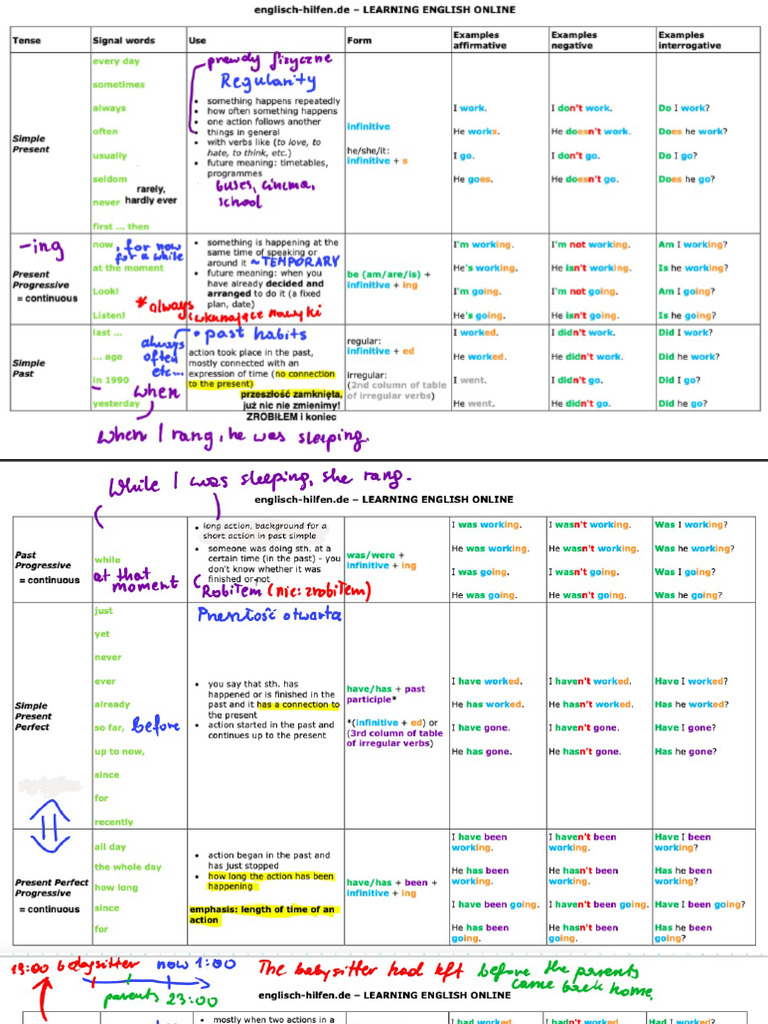 englisch-hilfen.de – LEARNING ENGLISH ONLINE
Tense Signal words Use Form Examples affirmative Examples negative Examples interrogative
Simple Present
every day
sometimes
always
often
usually
seldom
rarely,
never hardly ever
first ... then
prawdy fizyczne
Regularity
• something happens repeatedly
• how often something happens
• one action follows another
• things in general
• with verbs like (to love, to
hate, to think, etc.)
• future meaning: timetables,
programmes
buses, cinema,
school
infinitive
he/she/it:
infinitive + s
I work.
He works.
I go.
He goes.
I don't work.
He doesn't work.
I don't go.
He doesn't go.
Do I work?
Does he work?
Do I go?
Does he go?
-ing
Present
Progressive
= continuous
now, for now
for a while
at the moment
Look!
Listen!
* always
wkurzające nawyki
• something is happening at the
same time of speaking or
around it ~TEMPORARY
• future meaning: when you
have already decided and
arranged to do it (a fixed
plan, date)
be (am/are/is) +
infinitive + ing
I'm working.
He's working.
I'm going.
He's going.
I'm not working.
He isn't working.
I'm not going.
He isn't going.
Am I working?
Is he working?
Am I going?
Is he going?
Simple
Past
last ...
... ago
in 1990
yesterday
always
often
etc...
when
• past habits
action took place in the past,
mostly connected with an
expression of time (no connection
to the present)
przeszłość zamknięta,
już nic nie zmienimy!
ZROBIŁEM i koniec
regular:
infinitive + ed
irregular:
(2nd column of table
of irregular verbs)
I worked.
He worked.
I went.
He went.
I didn't work.
He didn't work.
I didn't go.
He didn't go.
Did I work?
Did he work?
Did I go?
Did he go?
When I rang, he was sleeping.
While I was sleeping, she rang.
englisch-hilfen.de – LEARNING ENGLISH ONLINE
Past
Progressive
= continuous
while
at that
moment
• long action, background for a
short action in past simple
• someone was doing sth. at a
certain time (in the past) - you
don't know whether it was
finished or not
Robiłem (nie: zrobiłem)
was/were +
infinitive + ing
I was working.
He was working.
I was going.
He was going.
I wasn't working.
He wasn't working.
I wasn't going.
He wasn't going.
Was I working?
Was he working?
Was I going?
Was he going?
Simple
Present
Perfect
just
yet
never
ever
already
so far, before
up to now,
since
for
recently
Przeszłość otwarta
• you say that sth. has
happened or is finished in the
past and it has a connection to
the present
• action started in the past and
continues up to the present
have/has + past
participle*
*(infinitive + ed) or
(3rd column of table
of irregular verbs)
I have worked.
He has worked.
I have gone.
He has gone.
I haven't worked.
He hasn't worked.
I haven't gone.
He hasn't gone.
Have I worked?
Has he worked?
Have I gone?
Has he gone?
Present Perfect
Progressive
= continuous
all day
the whole day
how long
since
for
• action began in the past and
has just stopped
• how long the action has been
happening
emphasis: length of time of an
action
have/has + been +
infinitive + ing
I have been
working.
He has been
working.
I have been going.
He has been
going.
I haven't been
working.
He hasn't been
working.
I haven't been going.
He hasn't been
going.
Have I been
working?
Has he been
working?
Have I been going?
Has he been
going?
19:00 babysitter now 1:00
parents 23:00
The babysitter had left before the parents
came back home.
englisch-hilfen.de – LEARNING ENGLISH ONLINE
• mostly when two actions in a
I had worked.
I hadn't worked.
Had I worked?